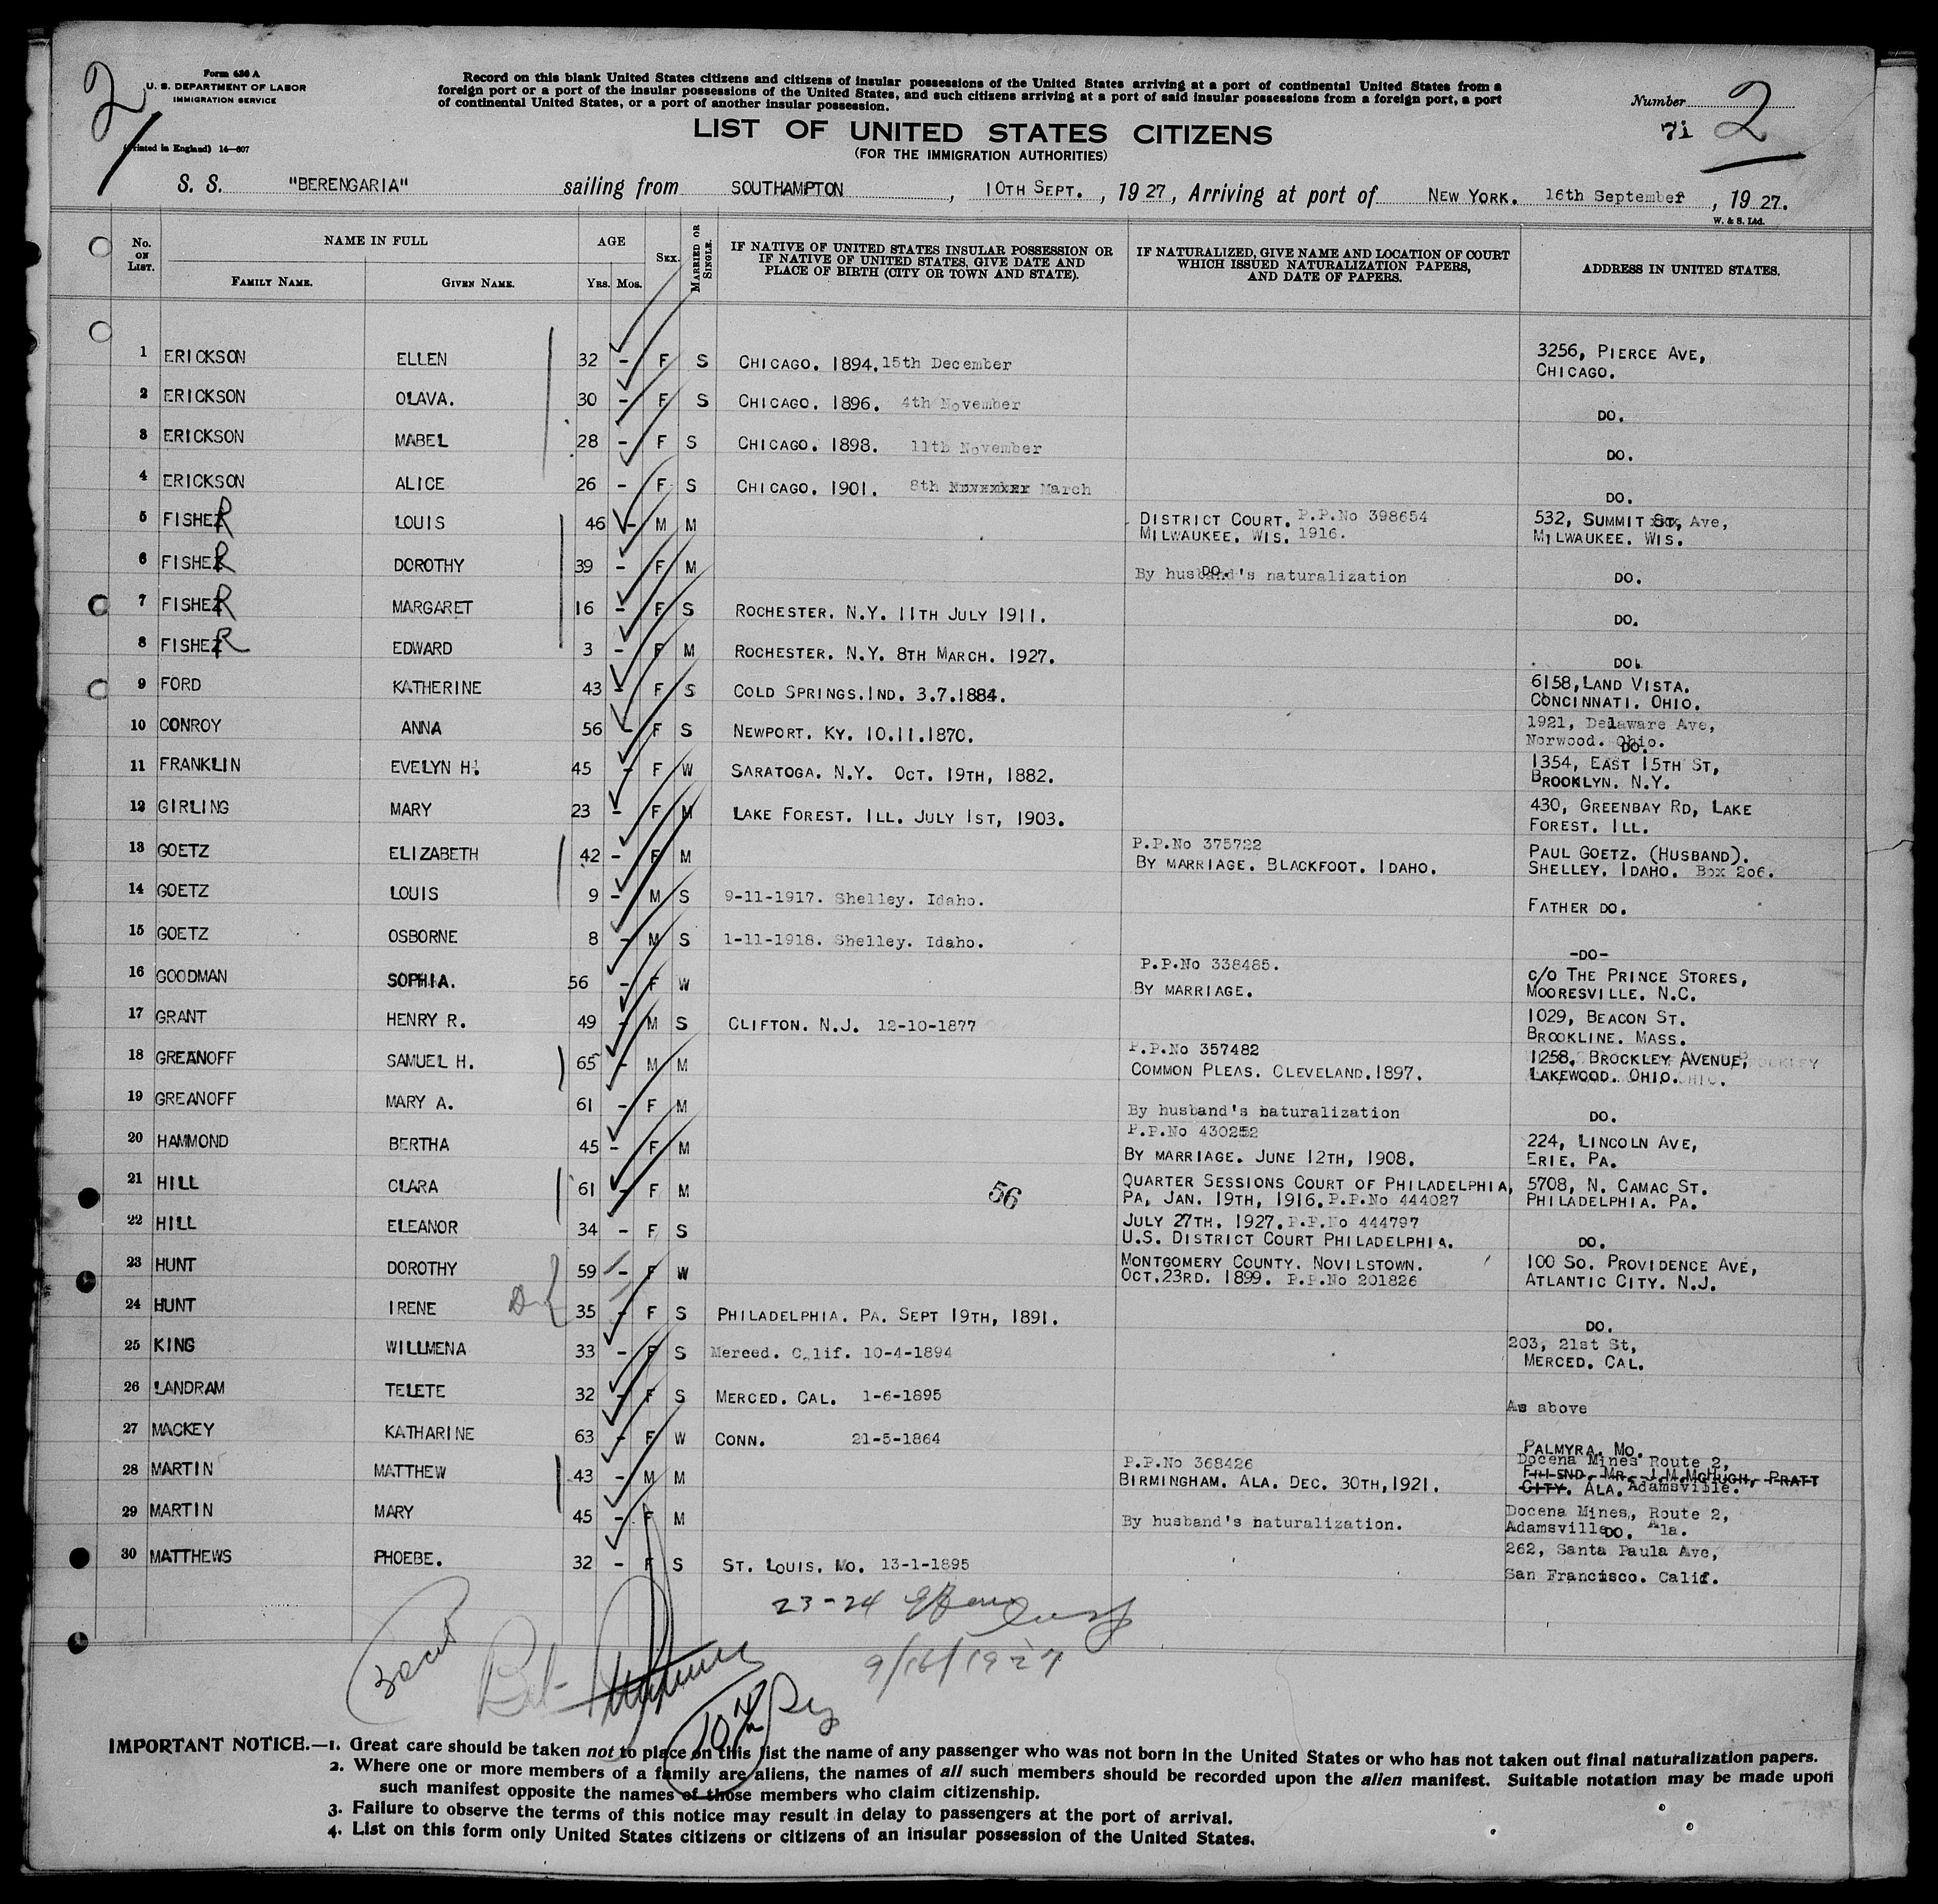 2
Form 630 A
U. S. DEPARTMENT OF LABOR
IMMIGRATION SERVICE
(Printed in England) 14—807
Record on this blank United States citizens and citizens of insular possessions of the United States arriving at a port of continental United States from a
foreign port or a port of the insular possessions of the United States, and such citizens arriving at a port of said insular possessions from a foreign port, a port
of continental United States, or a port of another insular possession.
Number 2
71
LIST OF UNITED STATES CITIZENS
(FOR THE IMMIGRATION AUTHORITIES)
S. S. "BERENGARIA" sailing from SOUTHAMPTON, 10TH SEPT., 1927, Arriving at port of NEW YORK. 16th September, 1927.
W. & S. Ltd.
No. ON LIST. NAME IN FULL FAMILY NAME. GIVEN NAME. AGE YRS. MOS. SEX. MARRIED OR SINGLE. IF NATIVE OF UNITED STATES INSULAR POSSESSION OR IF NATIVE OF UNITED STATES, GIVE DATE AND PLACE OF BIRTH (CITY OR TOWN AND STATE). IF NATURALIZED, GIVE NAME AND LOCATION OF COURT WHICH ISSUED NATURALIZATION PAPERS, AND DATE OF PAPERS. ADDRESS IN UNITED STATES.
1 ERICKSON ELLEN 32 - F S CHICAGO. 1894. 15th December 3256, PIERCE AVE, CHICAGO.
2 ERICKSON OLAVA. 30 - F S CHICAGO. 1896. 4th November DO.
3 ERICKSON MABEL 28 - F S CHICAGO. 1898. 11th November DO.
4 ERICKSON ALICE 26 - F S CHICAGO. 1901. 8th March DO.
5 FISHER LOUIS 46 - M M DISTRICT COURT. P.P.No 398654 MILWAUKEE. WIS. 1916. 532, SUMMIT St, Ave, MILWAUKEE. WIS.
6 FISHER DOROTHY 39 - F M DO. By husband's naturalization DO.
7 FISHER MARGARET 16 - F S ROCHESTER. N.Y. 11TH JULY 1911. DO.
8 FISHER EDWARD 3 - F M ROCHESTER. N.Y. 8TH MARCH. 1927. DO.
9 FORD KATHERINE 43 - F S COLD SPRINGS. IND. 3.7.1884. 6158, LAND VISTA. CONCINNATI. OHIO.
10 CONROY ANNA 56 - F S NEWPORT. KY. 10.11.1870. 1921, Delaware Ave, Norwood. Ohio. DO.
11 FRANKLIN EVELYN H. 45 - F W SARATOGA. N.Y. OCT. 19TH, 1882. 1354, EAST 15TH ST, BROOKLYN. N.Y.
12 GIRLING MARY 23 - F M LAKE FOREST. ILL. JULY 1ST, 1903. 430, GREENBAY RD, LAKE FOREST. ILL.
13 GOETZ ELIZABETH 42 - F M P.P.No 375722 BY MARRIAGE. BLACKFOOT. IDAHO. PAUL GOETZ. (HUSBAND). SHELLEY. IDAHO. Box 206.
14 GOETZ LOUIS 9 - M S 9-11-1917. Shelley. Idaho. FATHER DO.
15 GOETZ OSBORNE 8 - M S 1-11-1918. Shelley. Idaho. -DO-
16 GOODMAN SOPHIA. 56 - F W P.P.No 338485. BY MARRIAGE. c/o THE PRINCE STORES, MOORESVILLE. N.C.
17 GRANT HENRY R. 49 - M S CLIFTON. N.J. 12-10-1877 1029, BEACON ST. BROOKLINE. MASS.
18 GREANOFF SAMUEL H. 65 - M M P.P.No 357482 COMMON PLEAS. CLEVELAND. 1897. 1258, BROCKLEY AVENUE, LAKEWOOD. OHIO.
19 GREANOFF MARY A. 61 - F M By husband's naturalization DO.
20 HAMMOND BERTHA 45 - F M P.P.No 430252 BY MARRIAGE. JUNE 12TH, 1908. 224, LINCOLN AVE, ERIE. PA.
21 HILL CLARA 61 - F M 56 QUARTER SESSIONS COURT OF PHILADELPHIA, PA, JAN. 19TH, 1916. P.P.No 444027 5708, N. CAMAC ST. PHILADELPHIA. PA.
22 HILL ELEANOR 34 - F S JULY 27TH. 1927. P.P.No 444797 U.S. DISTRICT COURT PHILADELPHIA. DO.
23 HUNT DOROTHY 59 - F W MONTGOMERY COUNTY. NOVILSTOWN. OCT. 23RD. 1899. P.P.No 201826 100 SO. PROVIDENCE AVE, ATLANTIC CITY. N.J.
24 HUNT IRENE 35 - F S PHILADELPHIA. PA. SEPT 19TH, 1891. DO.
25 KING WILLMENA 33 - F S Merced. Calif. 10-4-1894 203, 21st St, MERCED. CAL.
26 LANDRAM TELETE 32 - F S MERCED. CAL. 1-6-1895 As above
27 MACKEY KATHARINE 63 - F W CONN. 21-5-1864 PALMYRA. MO.
28 MARTIN MATTHEW 43 - M M P.P.No 368426 BIRMINGHAM. ALA. DEC. 30TH, 1921. Docena Mines Route 2, FRIEND. MR. J.M.MCHUGH, PRATT CITY. ALA. Adamsville.
29 MARTIN MARY 45 - F M By husband's naturalization. Docena Mines, Route 2, Adamsville DO. Ala.
30 MATTHEWS PHOEBE. 32 - F S ST. LOUIS. MO. 13-1-1895 262, Santa Paula Ave, San Francisco. Calif.
23-24
9/16/1927
IMPORTANT NOTICE.—1. Great care should be taken not to place on this list the name of any passenger who was not born in the United States or who has not taken out final naturalization papers.
2. Where one or more members of a family are aliens, the names of all such members should be recorded upon the alien manifest. Suitable notation may be made upon
such manifest opposite the names of those members who claim citizenship.
3. Failure to observe the terms of this notice may result in delay to passengers at the port of arrival.
4. List on this form only United States citizens or citizens of an insular possession of the United States.